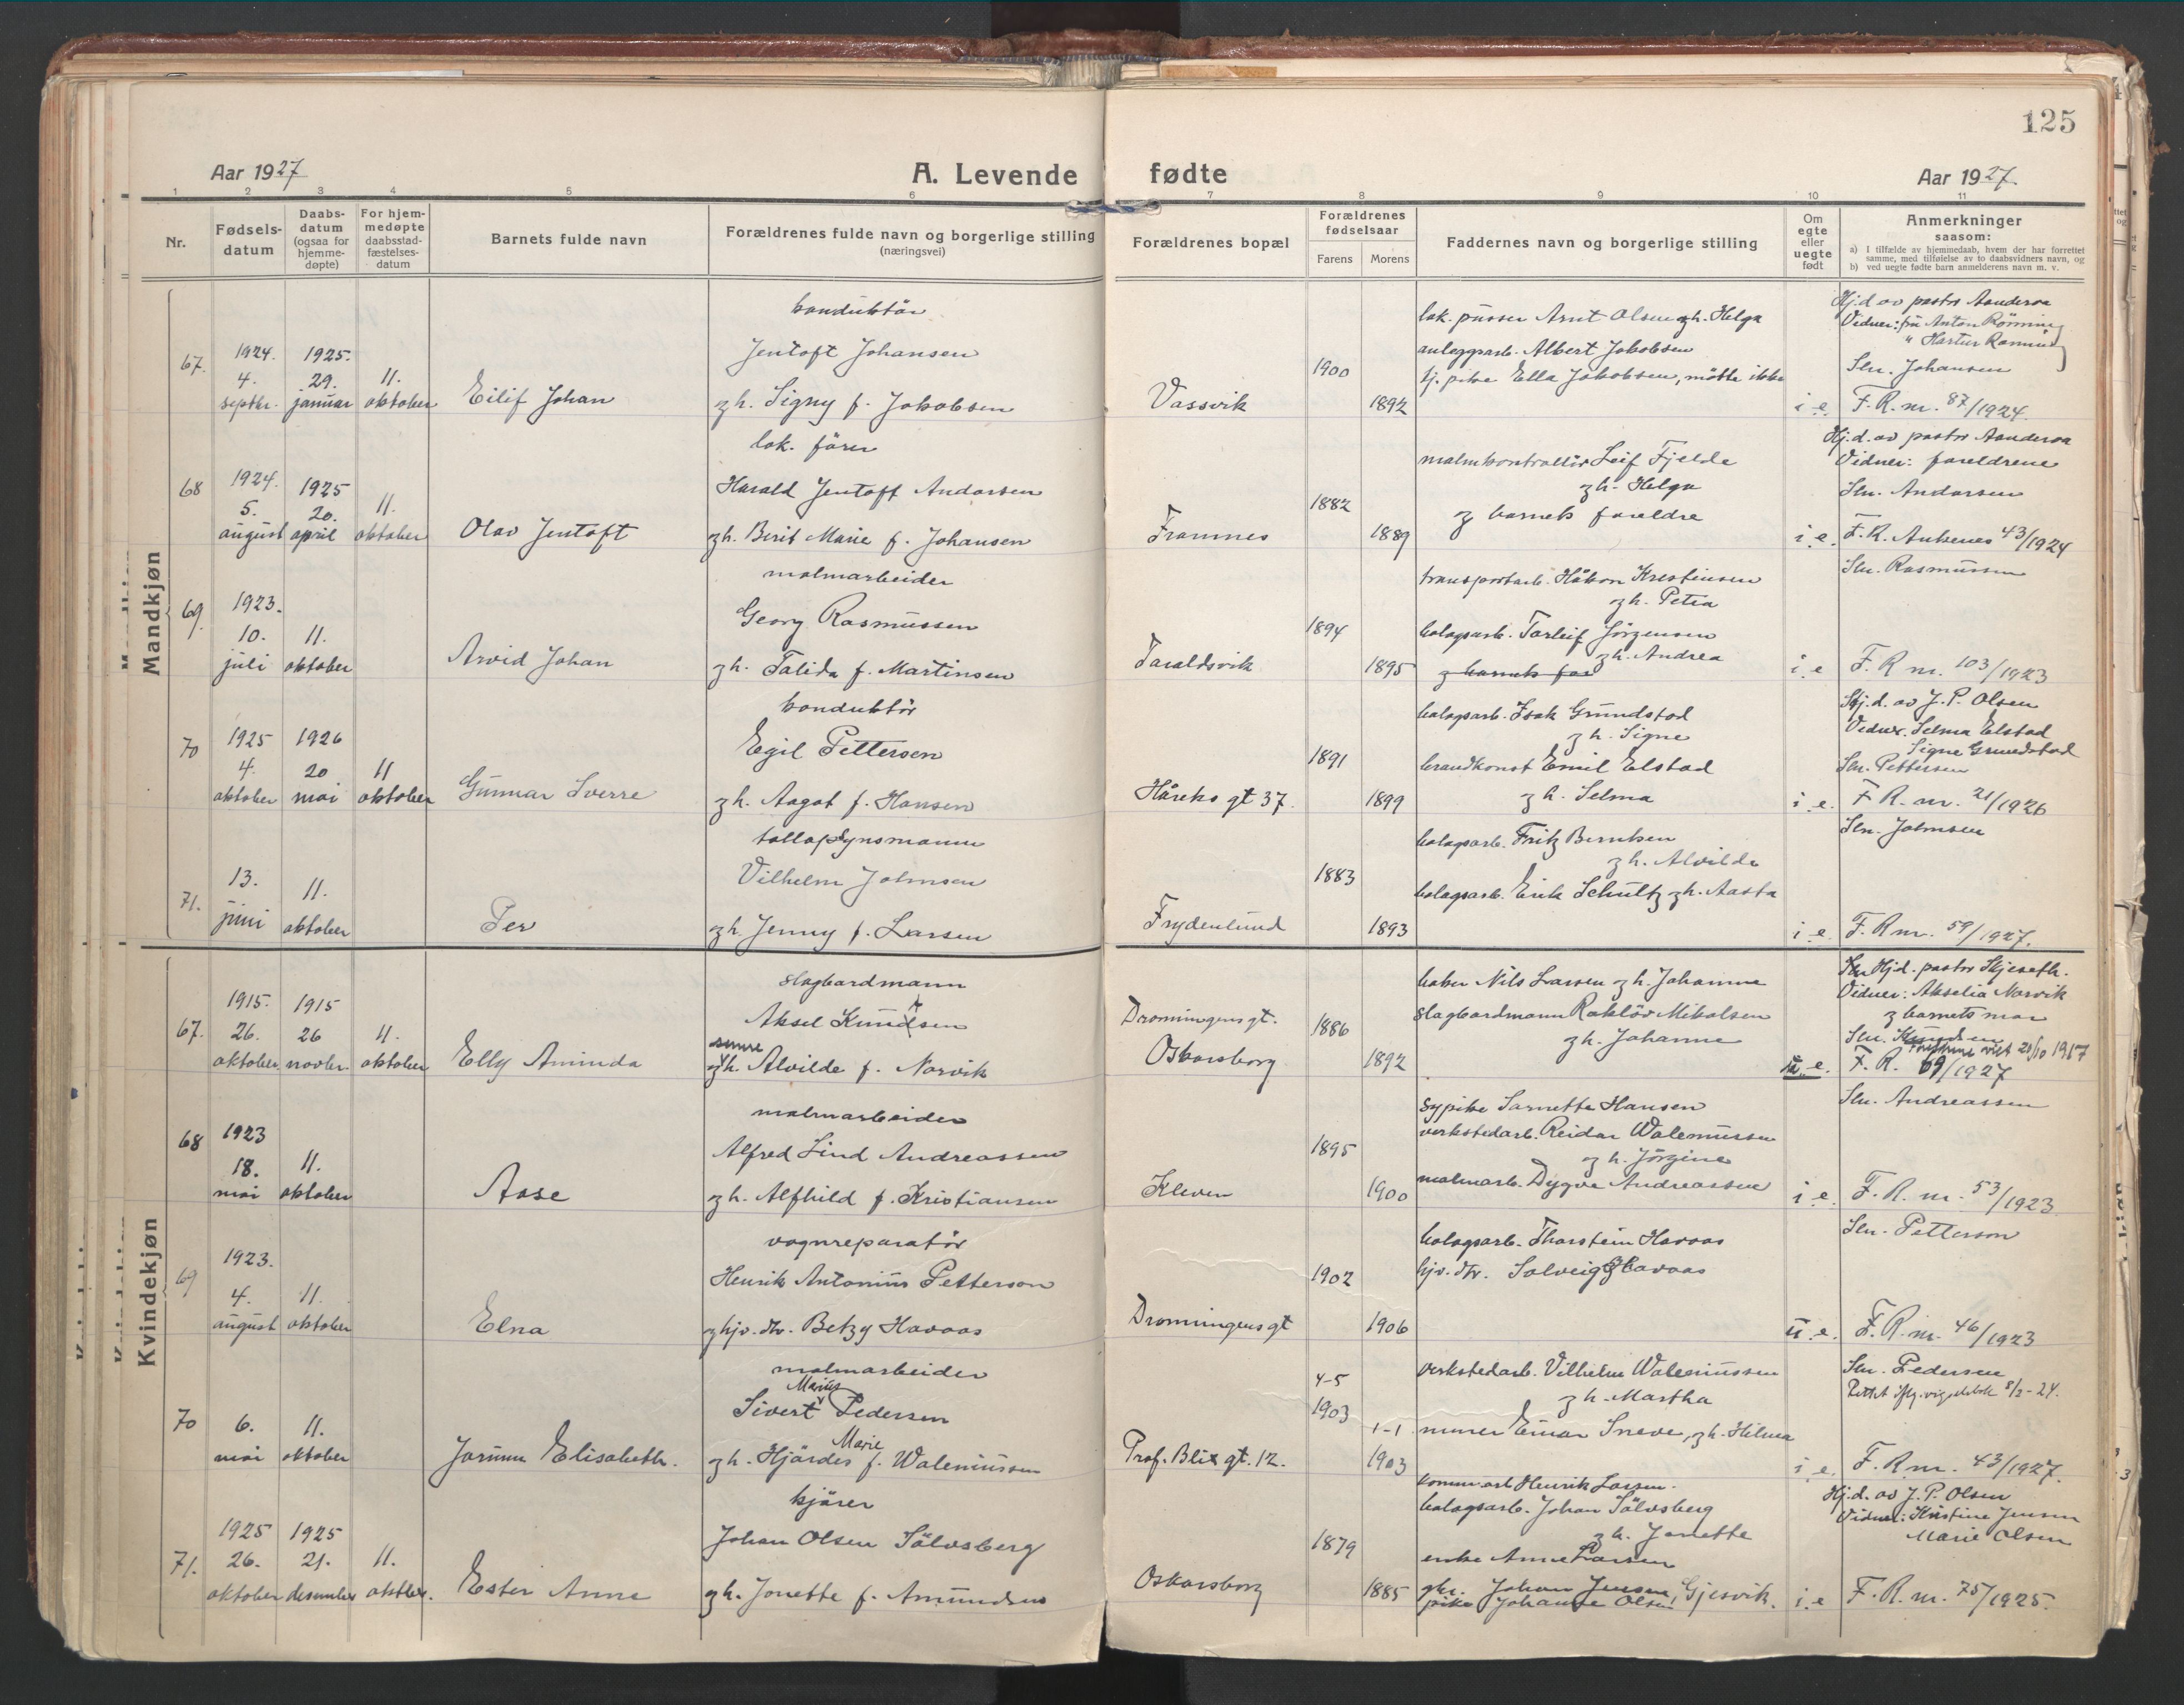 125
Aar 1927
A. Levende fødte
Aar 1927.
1 2 3 4 5 6 7 8 9 10 11
Nr.
Fødsels-
datum
Daabs-
datum
(ogsaa for
hjemme-
døpte)
For hjem-
medøpte
daabsstad-
fæstelses-
datum
Barnets fulde navn
Forældrenes fulde navn og borgerlige stilling
(næringsvei)
Forældrenes bopæl
Forældrenes
fødselsaar
Farens Morens
Faddernes navn og borgerlige stilling
Om
egte
eller
uegte
født
Anmerkninger
saasom:
a) I tilfælde av hjemmedaab, hvem der har forrettet
samme, med tilføielse av to daabsvidners navn, og
b) ved uegte fødte barn anmelderens navn m. v.
Mandkjøn
67.
1924.
4.
septbr.
1925.
29.
januar
11.
oktober
Eilif Johan
konduktør
Jentoft Johansen
og h. Signy f. Jakobsen
Vassvik
1900
1892
lok. pusser Arnt Olsen og h. Helga
anleggsarb. Albert Jakobsen
tj. pike Ella Jakobsen, møtte ikke
i. e.
Hj.d. av pastor Aanderaa
Vidner: fru Anton Rönning
Sen. Johansen
F. R. nr. 87/1924.
68
1924.
5.
august
1925
20.
april
11.
oktober
Olav Jentoft
lok. fører
Harald Jentoft Andorsen
og h. Berit Marie f. Johansen
Framnes
1882
1889
malmkontrollør Leif Fjelde
og h. Helga
og barnets foreldre
i. e.
Hj.d. av pastor Aanderaa
Vidner: foreldrene
Sen. Andorsen
F. R. Ankenes 43/1924
69.
1923.
10.
juli
11.
oktober
Arvid Johan
malmarbeider
Georg Rasmussen
og h. Talida f. Martinsen
Taraldsvik
1894
1895
transportarb. Håkon Kristensen
og h. Petra
bolagsarb. Torleif Jørgensen
og h. Andrea
og barnets far
i. e
Sen. Rasmussen
F. R nr. 103/1923
70
1925
4.
oktober
1926
20
mai
11
oktober
Gunnar Sverre
konduktør
Egil Pettersen
og h. Aagot f. Hansen
Håreks gt 37.
1891
1899
bolagsarb. Isak Grundstad
og h. Signe
brandkonst Emil Elstad
og h. Selma
i. e.
Hj.d. av J. P. Olsen
Vidner. Selma Elstad
Signe Grundstad
Sen. Pettersen
F R. nr. 21/1926
71.
13.
juni
11.
oktober
Per
tollopsynsmann
Vilhelm Johnsen
og h. Jenny f. Larsen
Frydenlund
1883
1893
bolagsarb. Fritz Berntsen
og h. Alvilde
bolagsarb. Erik Schultz og h. Aasta
i. e.
Sen. Johnsen
F. R nr. 59/1927.
Kvindekjøn
67.
1915.
26.
oktober
1915
26
novbr.
11.
oktober
Elly Aminda
slagbordmann
Aksel Knudsen
senere
og h. Alvilde f. Narvik
Dronningensgt.
Oskarsborg
1886
1892
baker Nils Larsen og h. Johanne
slagbordmann Ratløv Mikalsen
og h. Johanne
u. e.
Hj.d. pastor Skjeseth.
Vidner: Akselia Narvik
og barnets mor
Sen. Knudsen
F. R. 69/1927
68
1923
18.
mai
11.
oktober
Aase
malmarbeider
Alfred Lind Andreassen
og h. Alfhild f. Kristiansen
Kleven
1895
1900
sypike Sarnette Hansen
verkstedarb. Reidar Waleniussen
og h. Jörgine
malmarb. Dygve Andreassen
i e.
Sen. Andreassen
F. R. nr. 53/1923.
69
1923.
4.
august
11.
oktober
Elna
vognreparatör
Henrik Antonius Petterson
og hjv. dtr. Betzy Havaas
Dronningens gt
1902
1906
bolagsarb. Thorstein Havaas
hjv. dtr. Solveig Havaas
u. e.
Sen. Petterson
F. R. nr. 46/1923
70
6.
mai
11.
oktober
Jorunn Elisabeth.
malmarbeider
Marius
Sivert Pedersen
Marie
og h. Hjørdis f. Waleniussen
Prof. Blix gt. 12.
4-5
1903
1-1
1903
verkstedarb. Vilhelm Waleniussen
og h. Martha
murer Einar Sneve, og h. Helma
i e.
Sen. Pedersen
F. R. nr. 43/1927.
71.
1925
26.
oktober
1925
21.
desember
11.
oktbr.
Ester Anne
kjører
Johan Olsen Sølvsberg
og h. Jonette f. Amundsen
Oskarsborg
1879
1885
komm. arb Henrik Larsen.
bolagsarb. Johan Sølvsberg
og h. Jonette
enke Anne Larsen
gbr. Johan Jensen, Gjesvik.
pike Johanne Olsen
i. e
Hj.d. av J. P. Olsen
Vidner: Kristine Jensen
Marie Olsen
F. R. nr. 75/1925.